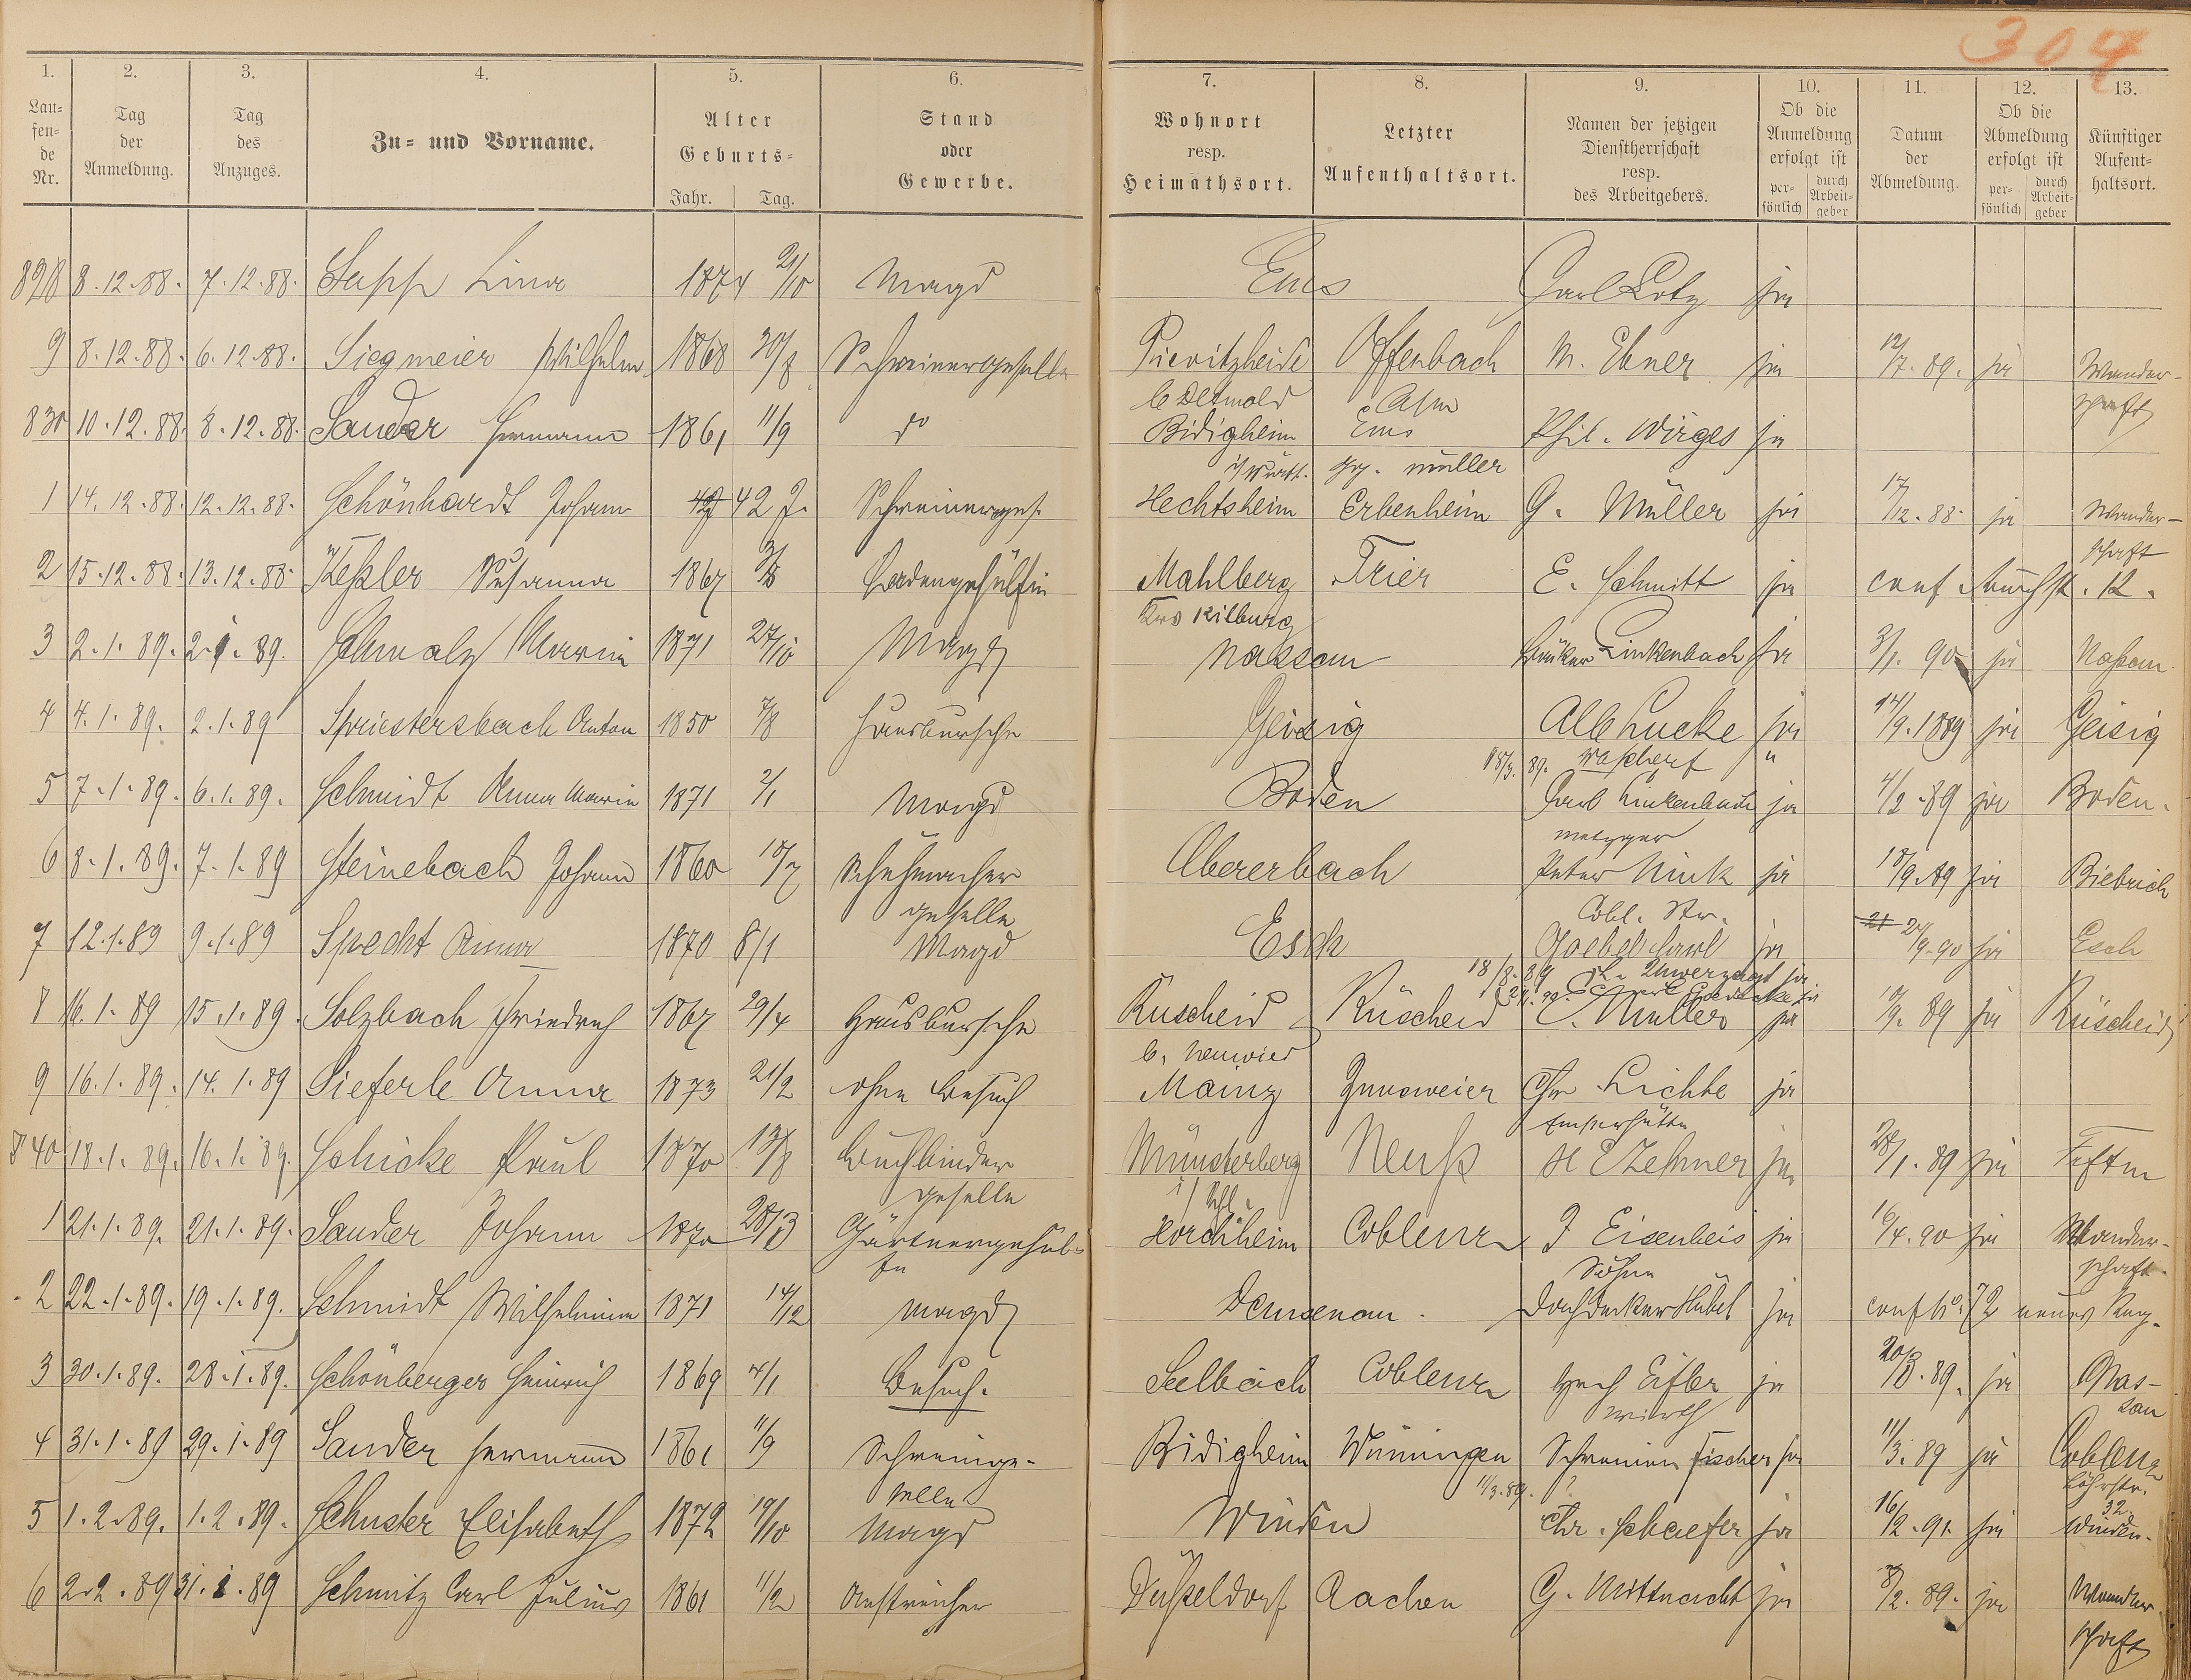 304
1. 2. 3. 4. 5. 6. 7. 8. 9. 10. 11. 12. 13.
Lau-
fen-
de
Nr.
Tag
der
Anmeldung.
Tag
des
Anzuges.
Zu- und Vorname.
Alter
Geburts-
Jahr. Tag.
Stand
oder
Gewerbe.
Wohnort
resp.
Heimathsort.
Letzter
Aufenthaltsort.
Namen der jetzigen
Dienstherrschaft
resp.
des Arbeitgebers.
Ob die
Anmeldung
erfolgt ist
per-
sönlich
durch
Arbeit-
geber
Datum
der
Abmeldung.
Ob die
Abmeldung
erfolgt ist
per-
sönlich
durch
Arbeit-
geber
Künftiger
Aufent-
haltsort.
8.12.88. 7.12.88. Sapp Lina 1874 21/10 Magd Ems Carl Lotz ja
9 8.12.88. 6.12.88. Siegmeier Wilhelm 1868 Schreinergeselle Pievitzheide Offenbach M. Ebner ja 12/7.89. ja Wander-
b Detmold schaft
830 10.12.88. 8.12.88. Sander Hermann 1861 11/9 do Bidigheim Ems Phil. Wirges ja
i/Württ. Müller
1 14.12.88. 12.12.88. Schönhardt Johann 42 J. Schreinerges. Hechtsheim Erbenheim G. Müller ja 17/12.88 ja Wander-
schaft
2 15.12.88. 13.12.88. Keßler Susanna 1867 Ladengehülfin Mahlberg Trier E. Schmitt ja conf. Buchst. K.
Krs Kilburg
3 2.1.89. 2.1.89. Schmalz Maria 1871 27/10 Magd Nassau Bäcker Linkenbach ja 3/1.90 ja Naßau
4 4.1.89. 2.1.89 Spriestersbach Anton 1850 7/8 Hausbursche Geisig Alb Lucke ja 14/9.1889 ja Geisig
18/3.89. "
5 7.1.89. 6.1.89. Schmidt Anna Maria 1871 2/1 Magd Boden Carl Linkenbach ja 4/2.89 ja Boden.
Metzger
6 8.1.89. 7.1.89 Steinebach Johann 1860 18/7 Schuhmacher Obererbach Peter Nink ja 18/9.89 ja Biebrich
geselle Cobl. Str.
7 12.1.89 9.1.89 Specht Anna 1870 8/1 Magd Esch Goebel Carl ja 9.90 ja Esch
18/8.89
8 16.1.89 15.1.89. Solzbach Friedrich 1867 29/4 Hausbursche Rüscheid Rüscheid C. Müller ja 89 ja Rüscheid
b. Neuwied
9 16.1.89. 14.1.89 Sieferle Anna 1873 21/2 ohne Besuch Mainz Zunsweier Chr Lichte ja
Emserhütte
840 18.1.89. 16.1.89. Schicke Paul 1870 13/8 Buchbinder Münsterberg Neuß H Zehner ja 28/1.89 ja
geselle i/Schl.
1 21.1.89. 21.1.89. Sander Johann 1870 28/3 Gärtnergehül- Horchheim Coblenz J Eisenbeis ja 16/4.90 ja Wander-
fe Söhne schaft.
2 22.1.89. 19.1.89. Schmidt Wilhelmine 1871 14/12 Magd Dausenau. Dachdecker Hübel ja conf No. 72 neues Reg.
3 30.1.89. 28.1.89. Schönberger Heinrich 1869 4/1 Besuch. Seelbach Coblenz Hch Eifler ja 20/3.89. ja Nas-
Wirth sau
4 31.1.89 29.1.89 Sander Hermann 1861 11/9 Schreinge- Bidigheim Winningen Schreiner Fischer ja 11/3.89 ja Coblenz
selle 11/3.89. ? Löhrstr. 32
5 1.2.89. 1.2.89. Schuster Elisabeth 1872 19/10 Magd Winden Chr. Schaefer ja 16/2.91. ja Winden.
6 2.2.89 31.1.89 Schmitz Carl Julius 1861 11/2 Anstreicher Düßeldorf Aachen G. Mittnacht ja 8/2.89. ja Wander-
schaft